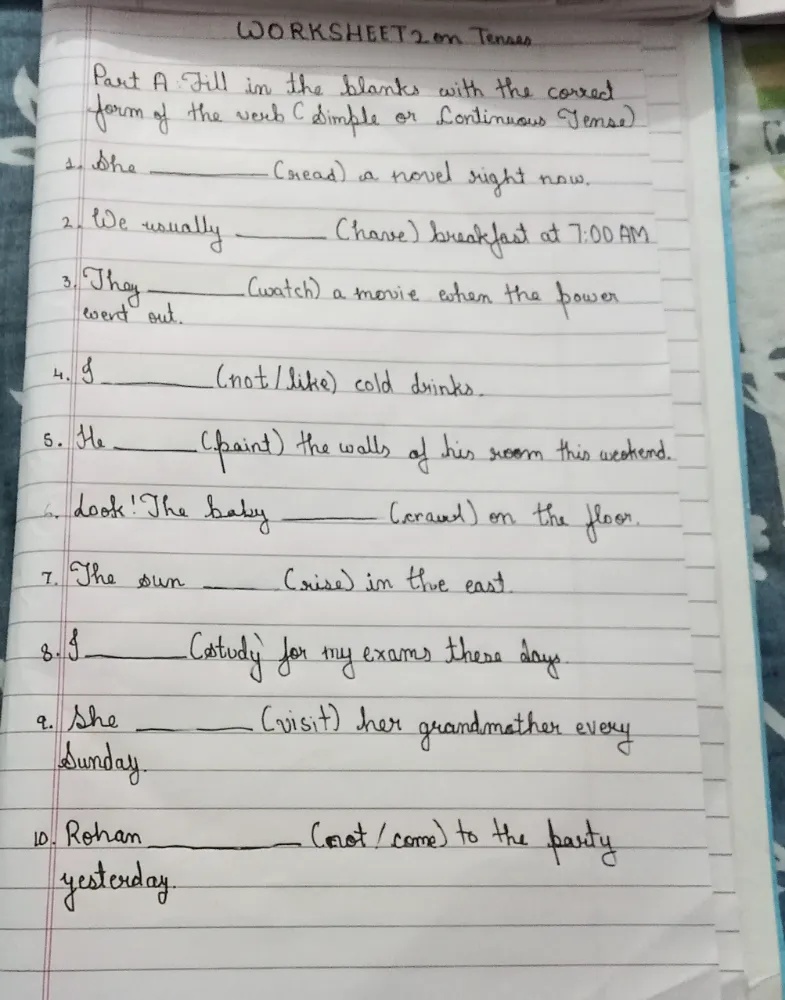 WORKSHEET 2 on Tenses
Part A Fill in the blanks with the correct
form of the verb (Simple or Continuous Tense)
1. She ________ (read) a novel right now.
2. We usually ________ (have) breakfast at 7:00 AM
3. They ________ (watch) a movie when the power
went out.
4. I ________ (not/like) cold drinks.
5. He ________ (paint) the walls of his room this weekend.
6. Look! The baby ________ (crawl) on the floor.
7. The sun ________ (rise) in the east.
8. I ________ (study) for my exams these days.
9. She ________ (visit) her grandmother every
Sunday.
10. Rohan ________ (not/come) to the party
yesterday.